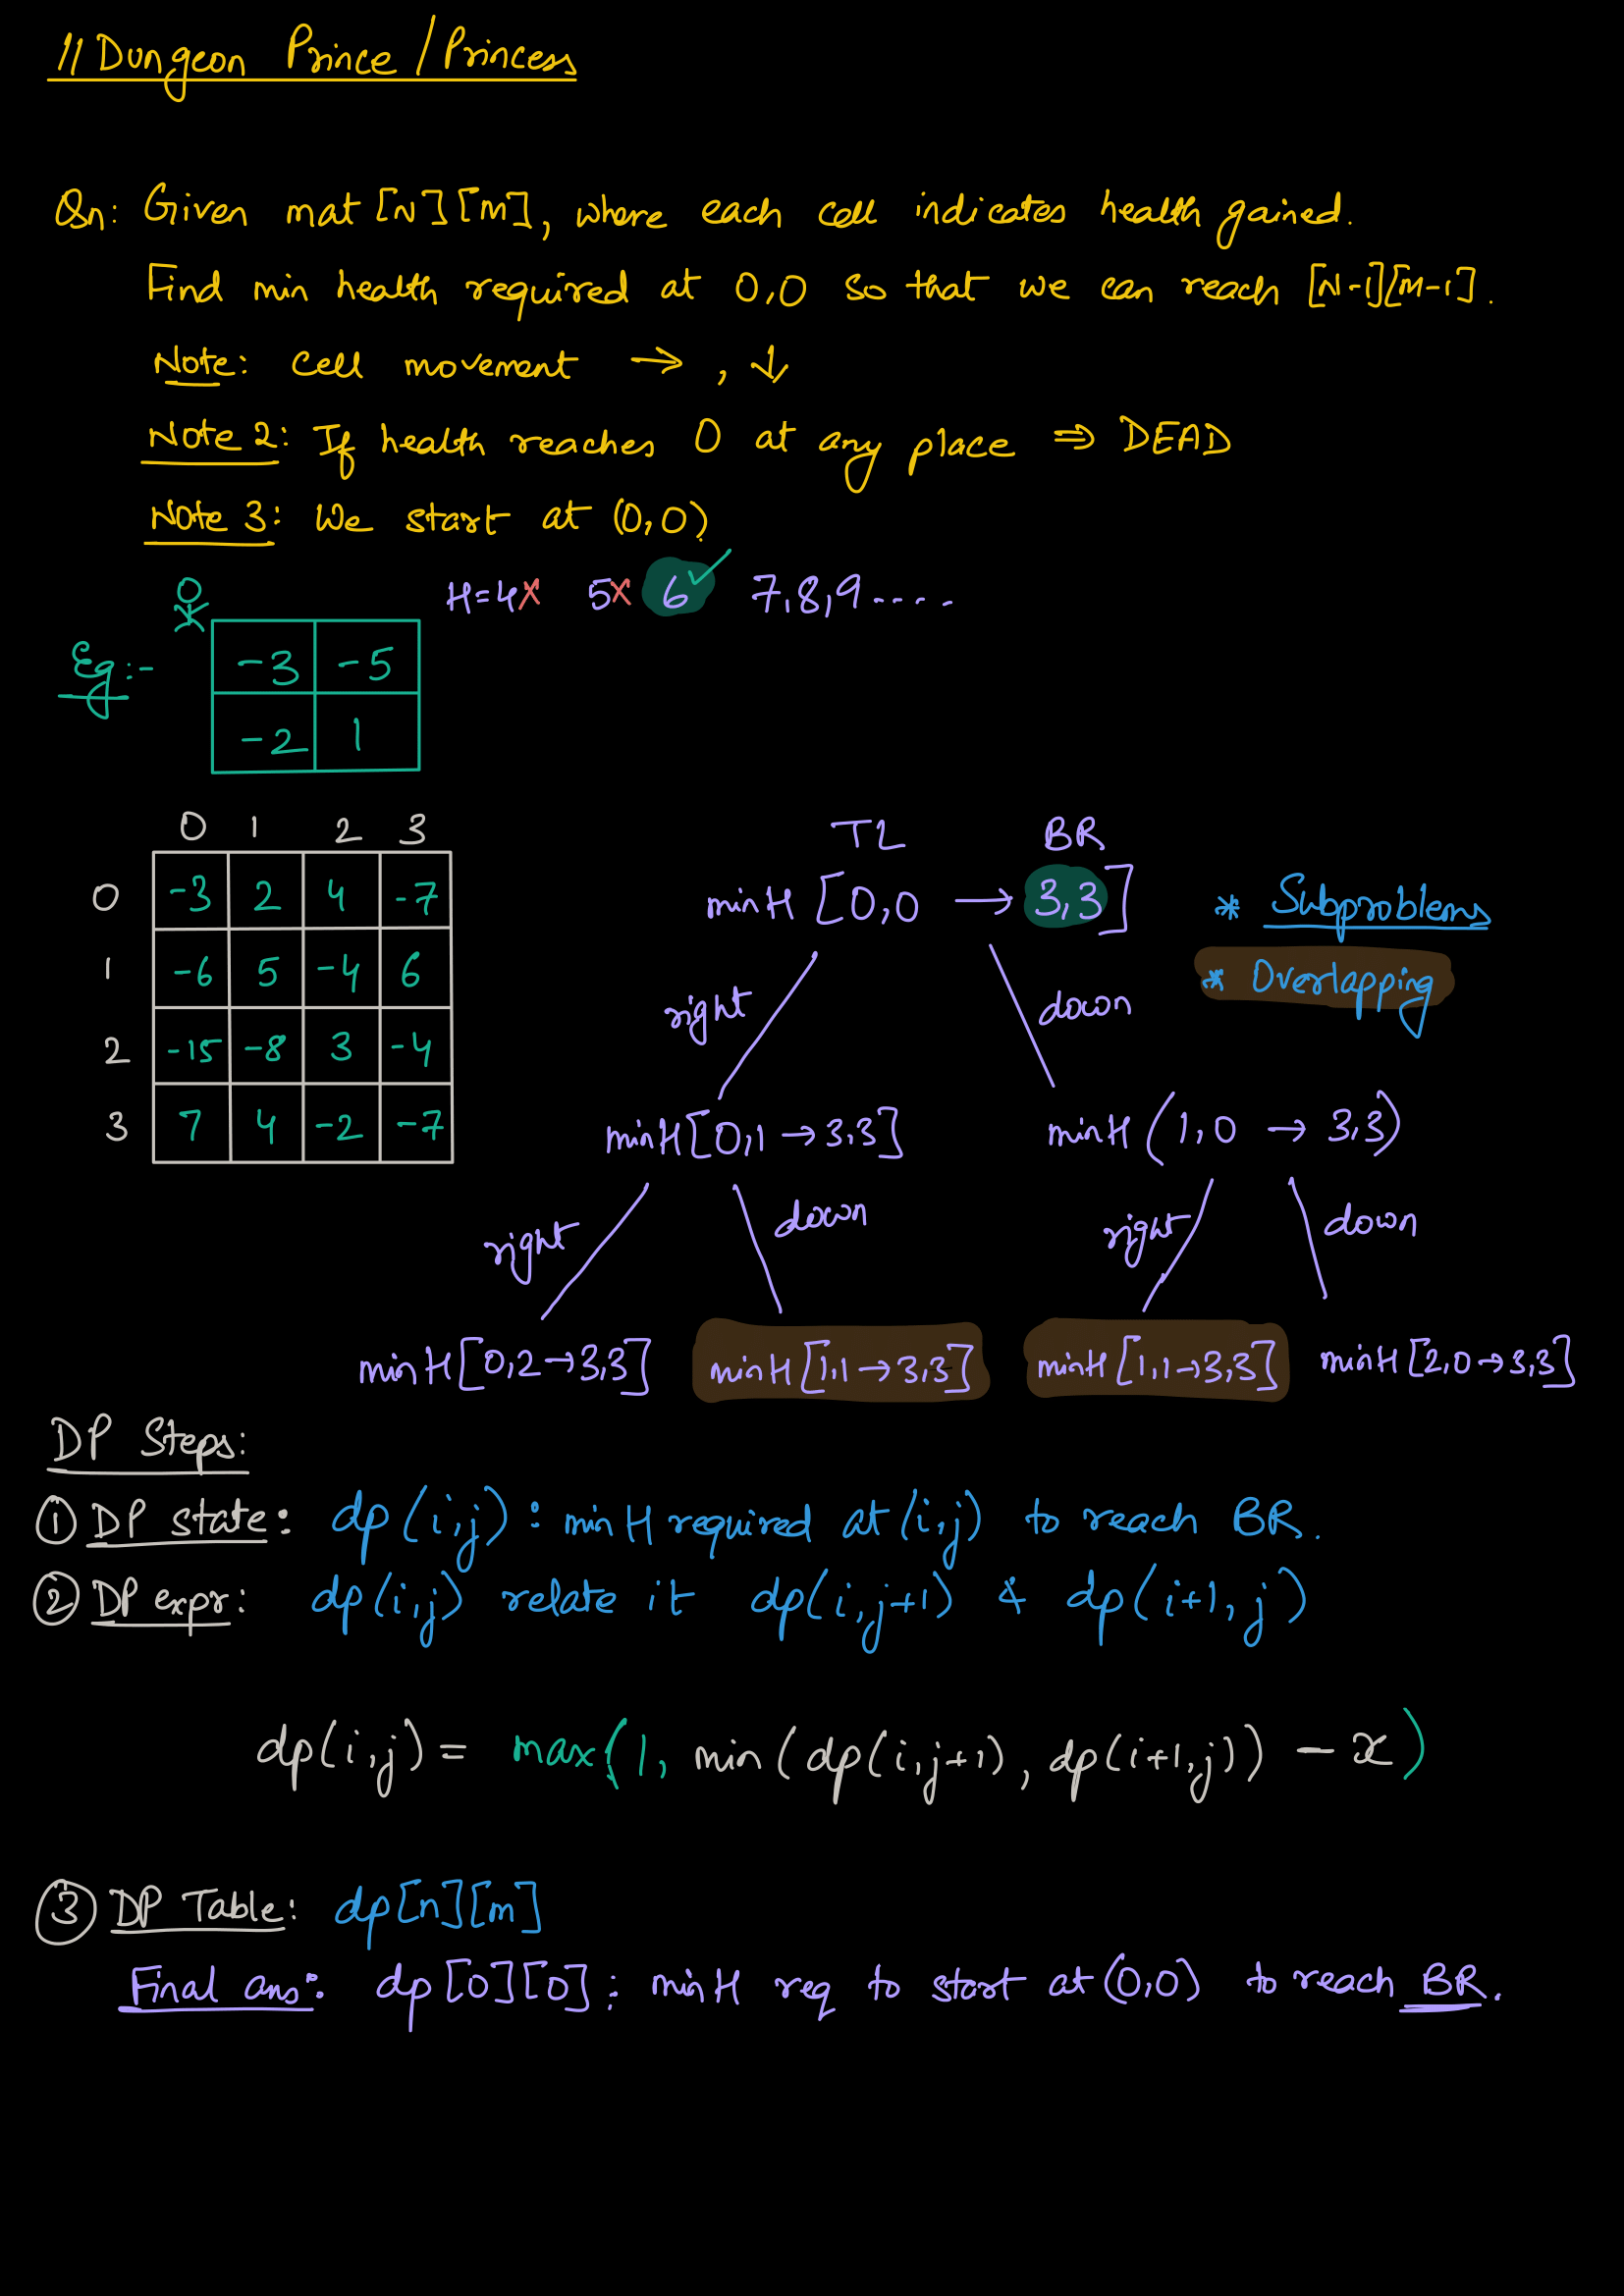 // Dungeon Prince / Princess
Qn: Given mat [N][M], where each cell indicates health gained.
Find min health required at 0,0 so that we can reach [N-1][M-1].
Note: Cell movement → , ↓
Note 2: If health reaches 0 at any place ⇒ DEAD
Note 3: We start at (0,0)
H=4x 5x 6✓ 7,8,9....
Eg:- -3 -5
-2 1
0 1 2 3
0 -3 2 4 -7
1 -6 5 -4 6
2 -15 -8 3 -4
3 7 4 -2 -7
TL BR
minH [0,0 → 3,3]
* Subproblems
* Overlapping
right down
minH[0,1 → 3,3] minH (1,0 → 3,3)
right down right down
minH[0,2→3,3] minH[1,1→3,3] minH[1,1→3,3] minH[2,0→3,3]
DP Steps:
① DP state: dp(i,j) : minH required at (i,j) to reach BR.
② DP expr: dp(i,j) relate it dp(i,j+1) & dp(i+1,j)
dp(i,j) = max(1, min(dp(i,j+1), dp(i+1,j)) - x)
③ DP Table: dp[n][m]
Final ans: dp[0][0]: minH req to start at (0,0) to reach BR.